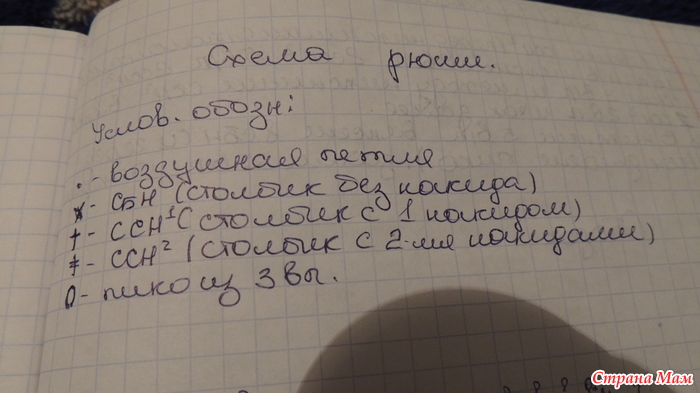 Схема рюши.
Услов. обозн:
. - воздушная петля
x - СБН (столбик без накида)
† - ССН¹ (столбик с 1 накидом)
‡ - ССН² (столбик с 2-мя накидами)
0 - пико из 3 вп.
Страна Мам